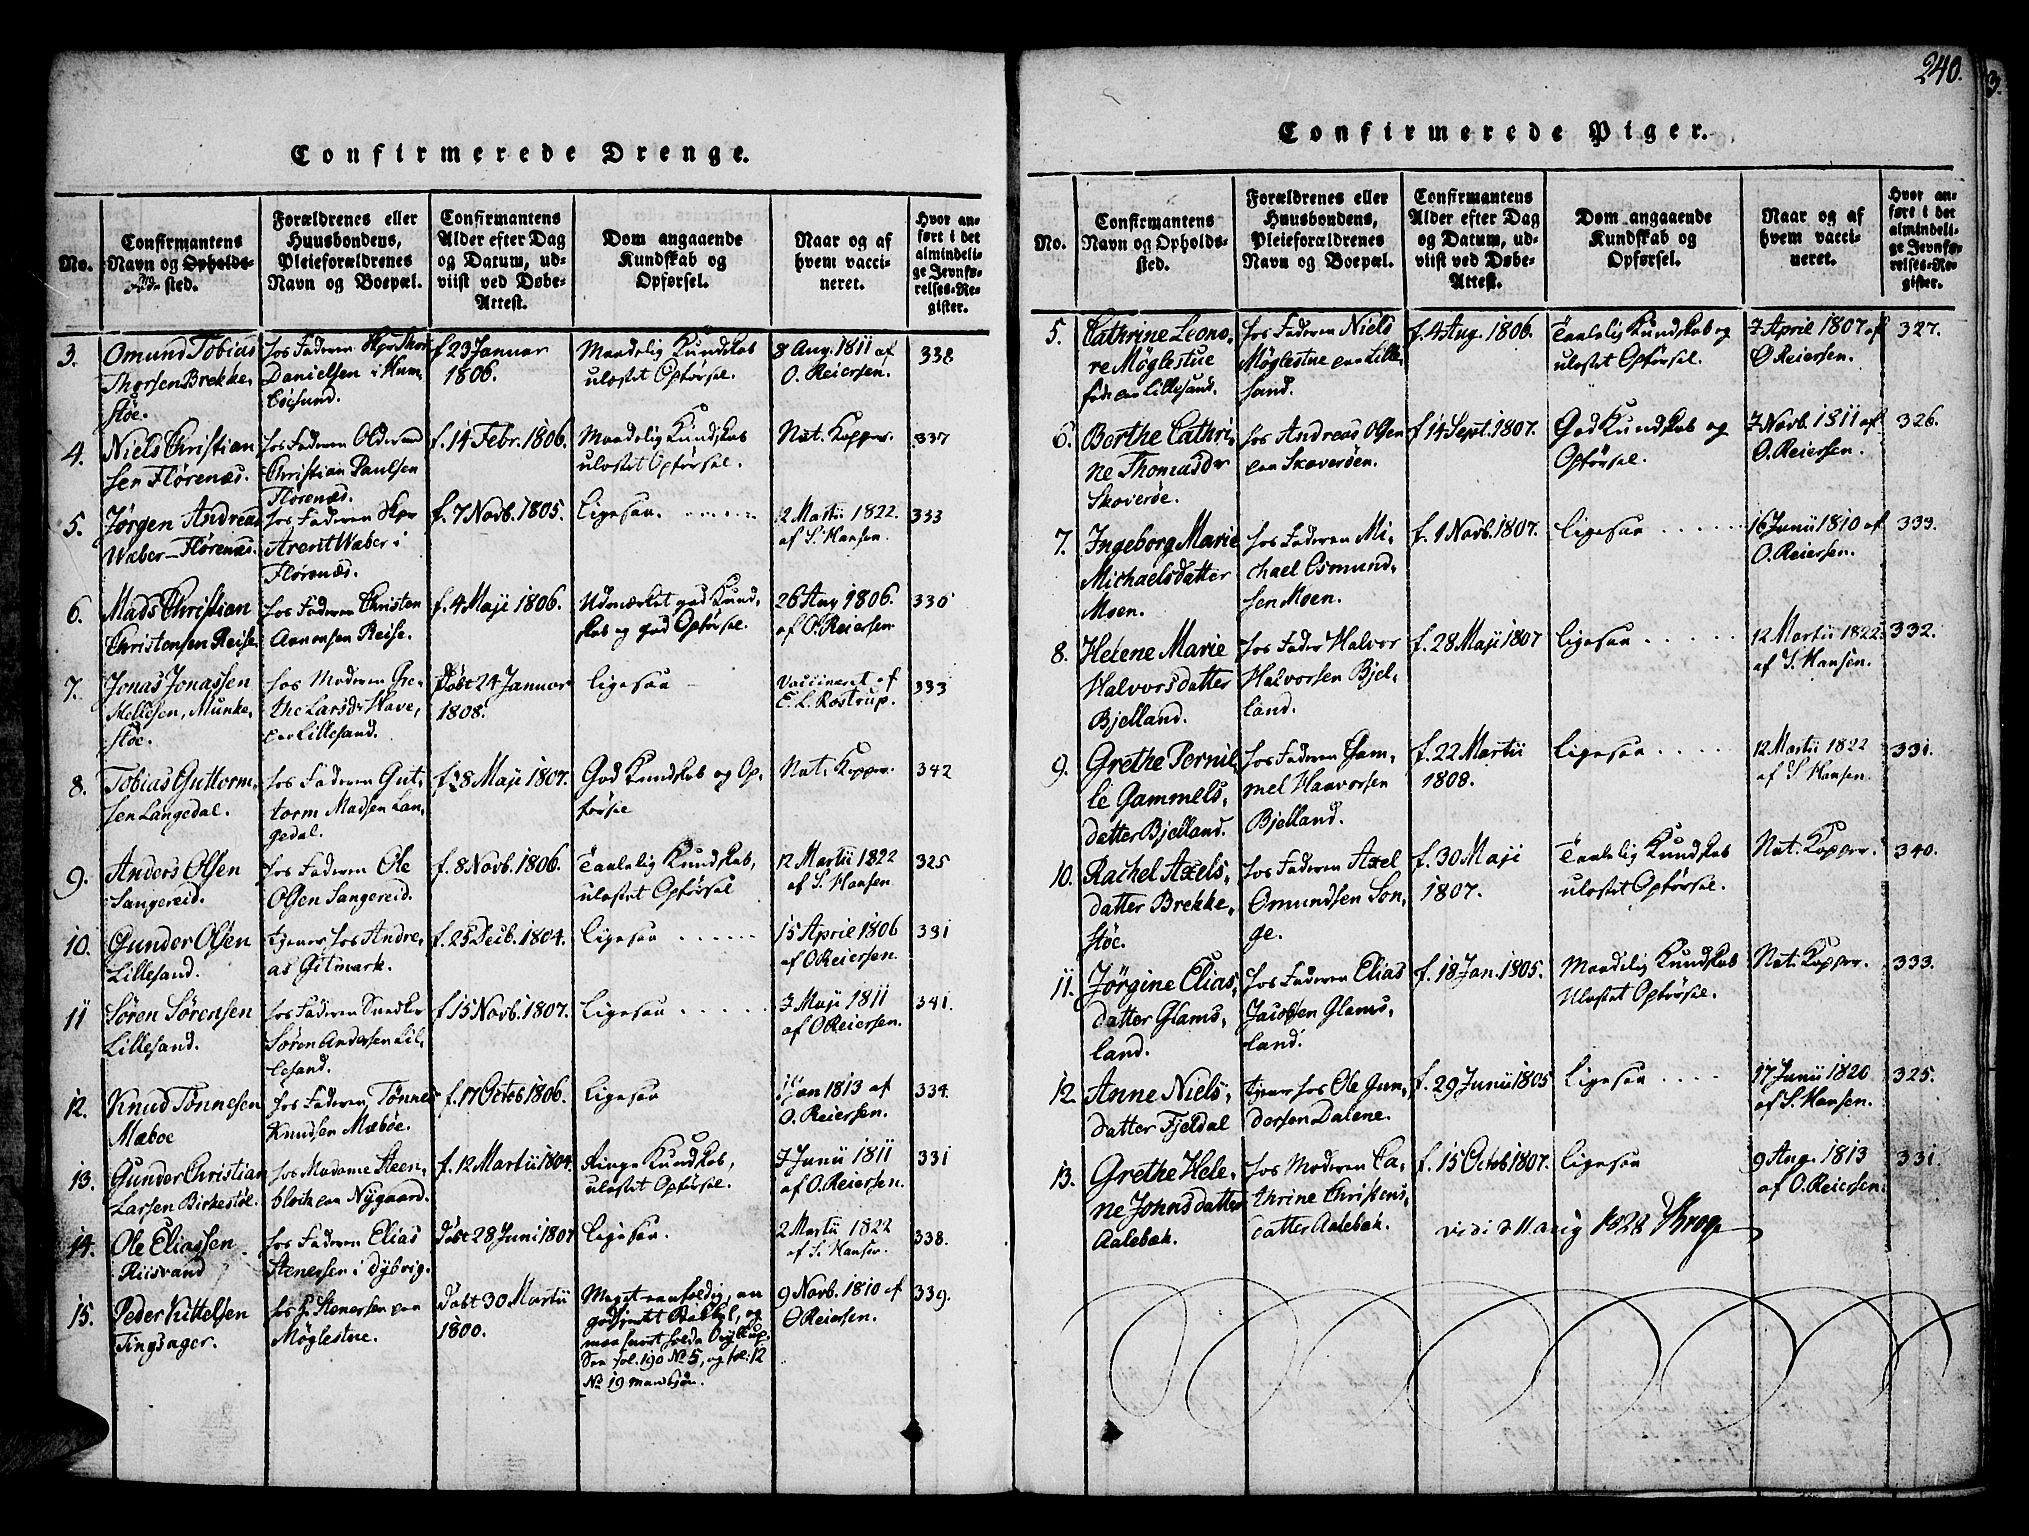 240.
Confirmerede Drenge.
No.
Confirmantens
Navn og Opholds-
sted.
Forældrenes eller
Huusbondens,
Pleieforældrenes
Navn og Boepæl.
Confirmantens
Alder efter Dag
og Datum, ud-
viist ved Døbe-
Attest.
Dom angaaende
Kundskab og
Opførsel.
Naar og af
hvem vacci-
neret.
Hvor an-
ført i det
almindeli-
ge Jevnfø-
relses-Re-
gister.
3.
Omund Tobias
Thorsen Brekke,
støe.
hos Faderen Skpr Thor
Danielsen i Hum,
løesund.
f. 23 Januar
1806.
Maadelig Kundskab
ulastet Opførsel.
8 Aug. 1811 af
O. Reiersen.
338
4.
Niels Christian
sen Flørenæs.
hos Faderen
Christian Paulsen
Flørenæs.
f. 14 Febr. 1806.
Maadelig Kundskab
ulastet Opførsel.
Nat. Kopper.
337
5.
Jørgen Andreas
Waber Flørenæs.
hos Faderen Skpr
Arent Waber i
Flørenæs.
f. 7 Novb. 1805.
Ligesaa.
12 Martii 1822.
af S. Hansen.
333
6.
Mads Christian
Christensen Reise
hos Faderen Christen
Aanonsen Reise.
f. 4 Maji 1806.
Udmærket god Kund,
skab og god Opførsel.
26 Aug 1806.
af O. Reiersen
336
7.
Jonas Jonassen
Kellesen, Munke,
støe.
hos Moderen Gre-
the Larsdr Skave,
en Lillesand.
Døbt 24 Januar
1808.
Ligesaa
Vaccineret af
E. L. Rostrup.
333
8.
Tobias Guttorm,
sen Langedal.
hos Faderen Gut,
torm Madsen Lan,
gedal.
f. 28 Maji 1807.
God Kundskab og Op,
førsel
Nat. Kopper.
342
9.
Anders Olsen
Sangereid.
hos Faderen Ole
Olsen Sangereid.
f. 8 Novb. 1806.
Taalelig Kundskab,
ulastet Opførsel
12 Martii 1822
af S. Hansen
325
10.
Gunder Olsen
Lillesand.
tjener hos Andre,
as Gitmark.
f. 25 Decb. 1804.
Ligesaa
15 Aprie 1806
af O. Reiersen.
331
11
Søren Sørensen
Lillesand.
hos Faderen Snedker
Søren Andersen Lil,
lesand.
f 15 Novb. 1807.
Ligesaa
7 Maji 1811
af O. Reiersen.
341.
12.
Knud Tønnesen
Mæboe
hos Faderen Tønnes
Knudsen Mæbøe.
f. 17 Octob 1806.
Ligesaa
Jan 1813 af
O. Reiersen.
334.
13.
Gunder Christian
Larsen Birkestøl.
hos Madame Steen,
blok paa Nygaard.
f. 12 Martii 1804.
Ringe Kundskab,
ulastet Opførsel.
7 Junii 1811
af O. Reiersen.
331
14.
Ole Eliassen
Riisvand
hos Faderen Elias
Stenersen i Dybvig.
Døbt 28 Juni 1807
Ligesaa.
2 Martii 1822
af S. Hansen.
338.
15.
Peder Kittelsen
Tingsager.
hos Stenersen paa
Møglestue.
Døbt 30 Martii
1800.
Meget eenfoldig, en
og
maa
fol. 190 No 5, og 12
No 19
9 Novb. 1810 af
O Reiersen.
339.
Confirmerede Piger.
No.
Confirmantens
Navn og Opholds-
sted.
Forældrenes eller
Huusbondens,
Pleieforældrenes
Navn og Boepæl.
Confirmantens
Alder efter Dag
og Datum, ud-
viist ved Døbe-
Attest.
Dom angaaende
Kundskab og
Opførsel.
Naar og af
hvem vacci-
neret.
Hvor an-
ført i det
almindeli-
ge Jevnfø-
relses-Re-
gister.
5.
Cathrine Leono,
re Møglestue
Lillesand.
hos Faderen Niels
Møglestue paa Lille
sand.
f. 4 Aug. 1806.
Taalelig Kundskab og
ulastet Opførsel.
7 April 1807 af
O Reiersen.
327.
6.
Berthe Cathri,
ne Thomasdr
Skoverøe.
hos Andreas Olsen
paa Skoverøen.
f. 14 Sept. 1807.
God Kundskab og
Opførsel.
7 Novb. 1811 af
O. Reiersen.
326.
7.
Ingeborg Marie
Michaelsdatter
Moen.
hos Faderen Mi,
chael Osmund,
sen Moen.
f. 1 Novb. 1807.
Ligesaa
16 Junii 1810 af
O. Reiersen.
333.
8.
Helene Marie
Halvorsdatter
Bjelland.
hos Fader Halvor
Halvorsen Bjel,
land.
f. 28 Maji 1807
Ligesaa
12 Martii 1822.
af S. Hansen.
332.
9.
Grethe Pernil,
le Gammels,
datter Bjelland.
hos Faderen Gam,
mel Haavorsen
Bjelland.
f. 22 Martii
1808.
Ligesaa
12 Martii 1822
af S Hansen.
331.
10.
Rachel Axels,
datter Brekke,
støe.
hos Faderen Axel
Omundsen Son,
ge.
f. 30 Maji
1807.
Taalelig Kundskab
ulastet Opførsel.
Nat. Kopper.
340.
11.
Jørgine Elias,
datter Glams,
land.
hos Faderen Elias
Jacobsen Glams,
land.
f. 18 Jan. 1805.
Maadelig Kundskab
Ulastet Opførsel.
Nat. Kopper.
333.
12.
Anne Niels,
datter Fjeldal
tjener hos Ole Gun,
dersen Dalene.
f. 29 Junii 1805
Ligesaa
17 Junii 1820
af S. Hansen.
325.
13.
Grethe Hele,
ne Johnsdatter
Aalebæk.
hos Moderen Ca,
thrine Christens,
datter Aalebæk.
f. 15 Octob 1807.
Ligesaa
9 Aug. 1813
af O. Reiersen.
331.
vidi